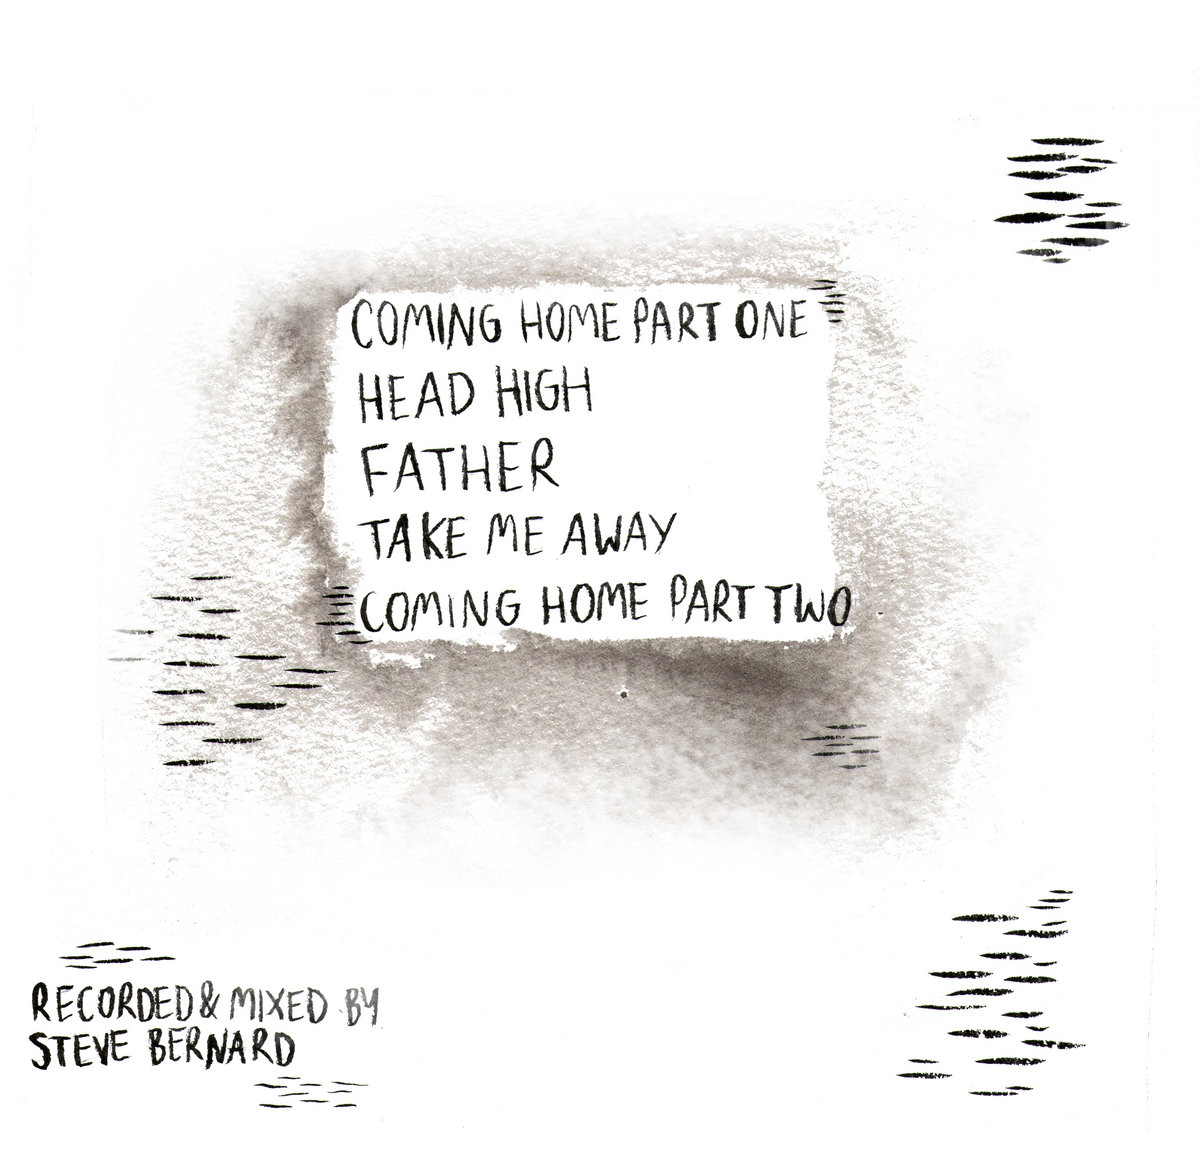 COMING HOME PART ONE
HEAD HIGH
FATHER
TAKE ME AWAY
COMING HOME PART TWO
RECORDED & MIXED BY
STEVE BERNARD